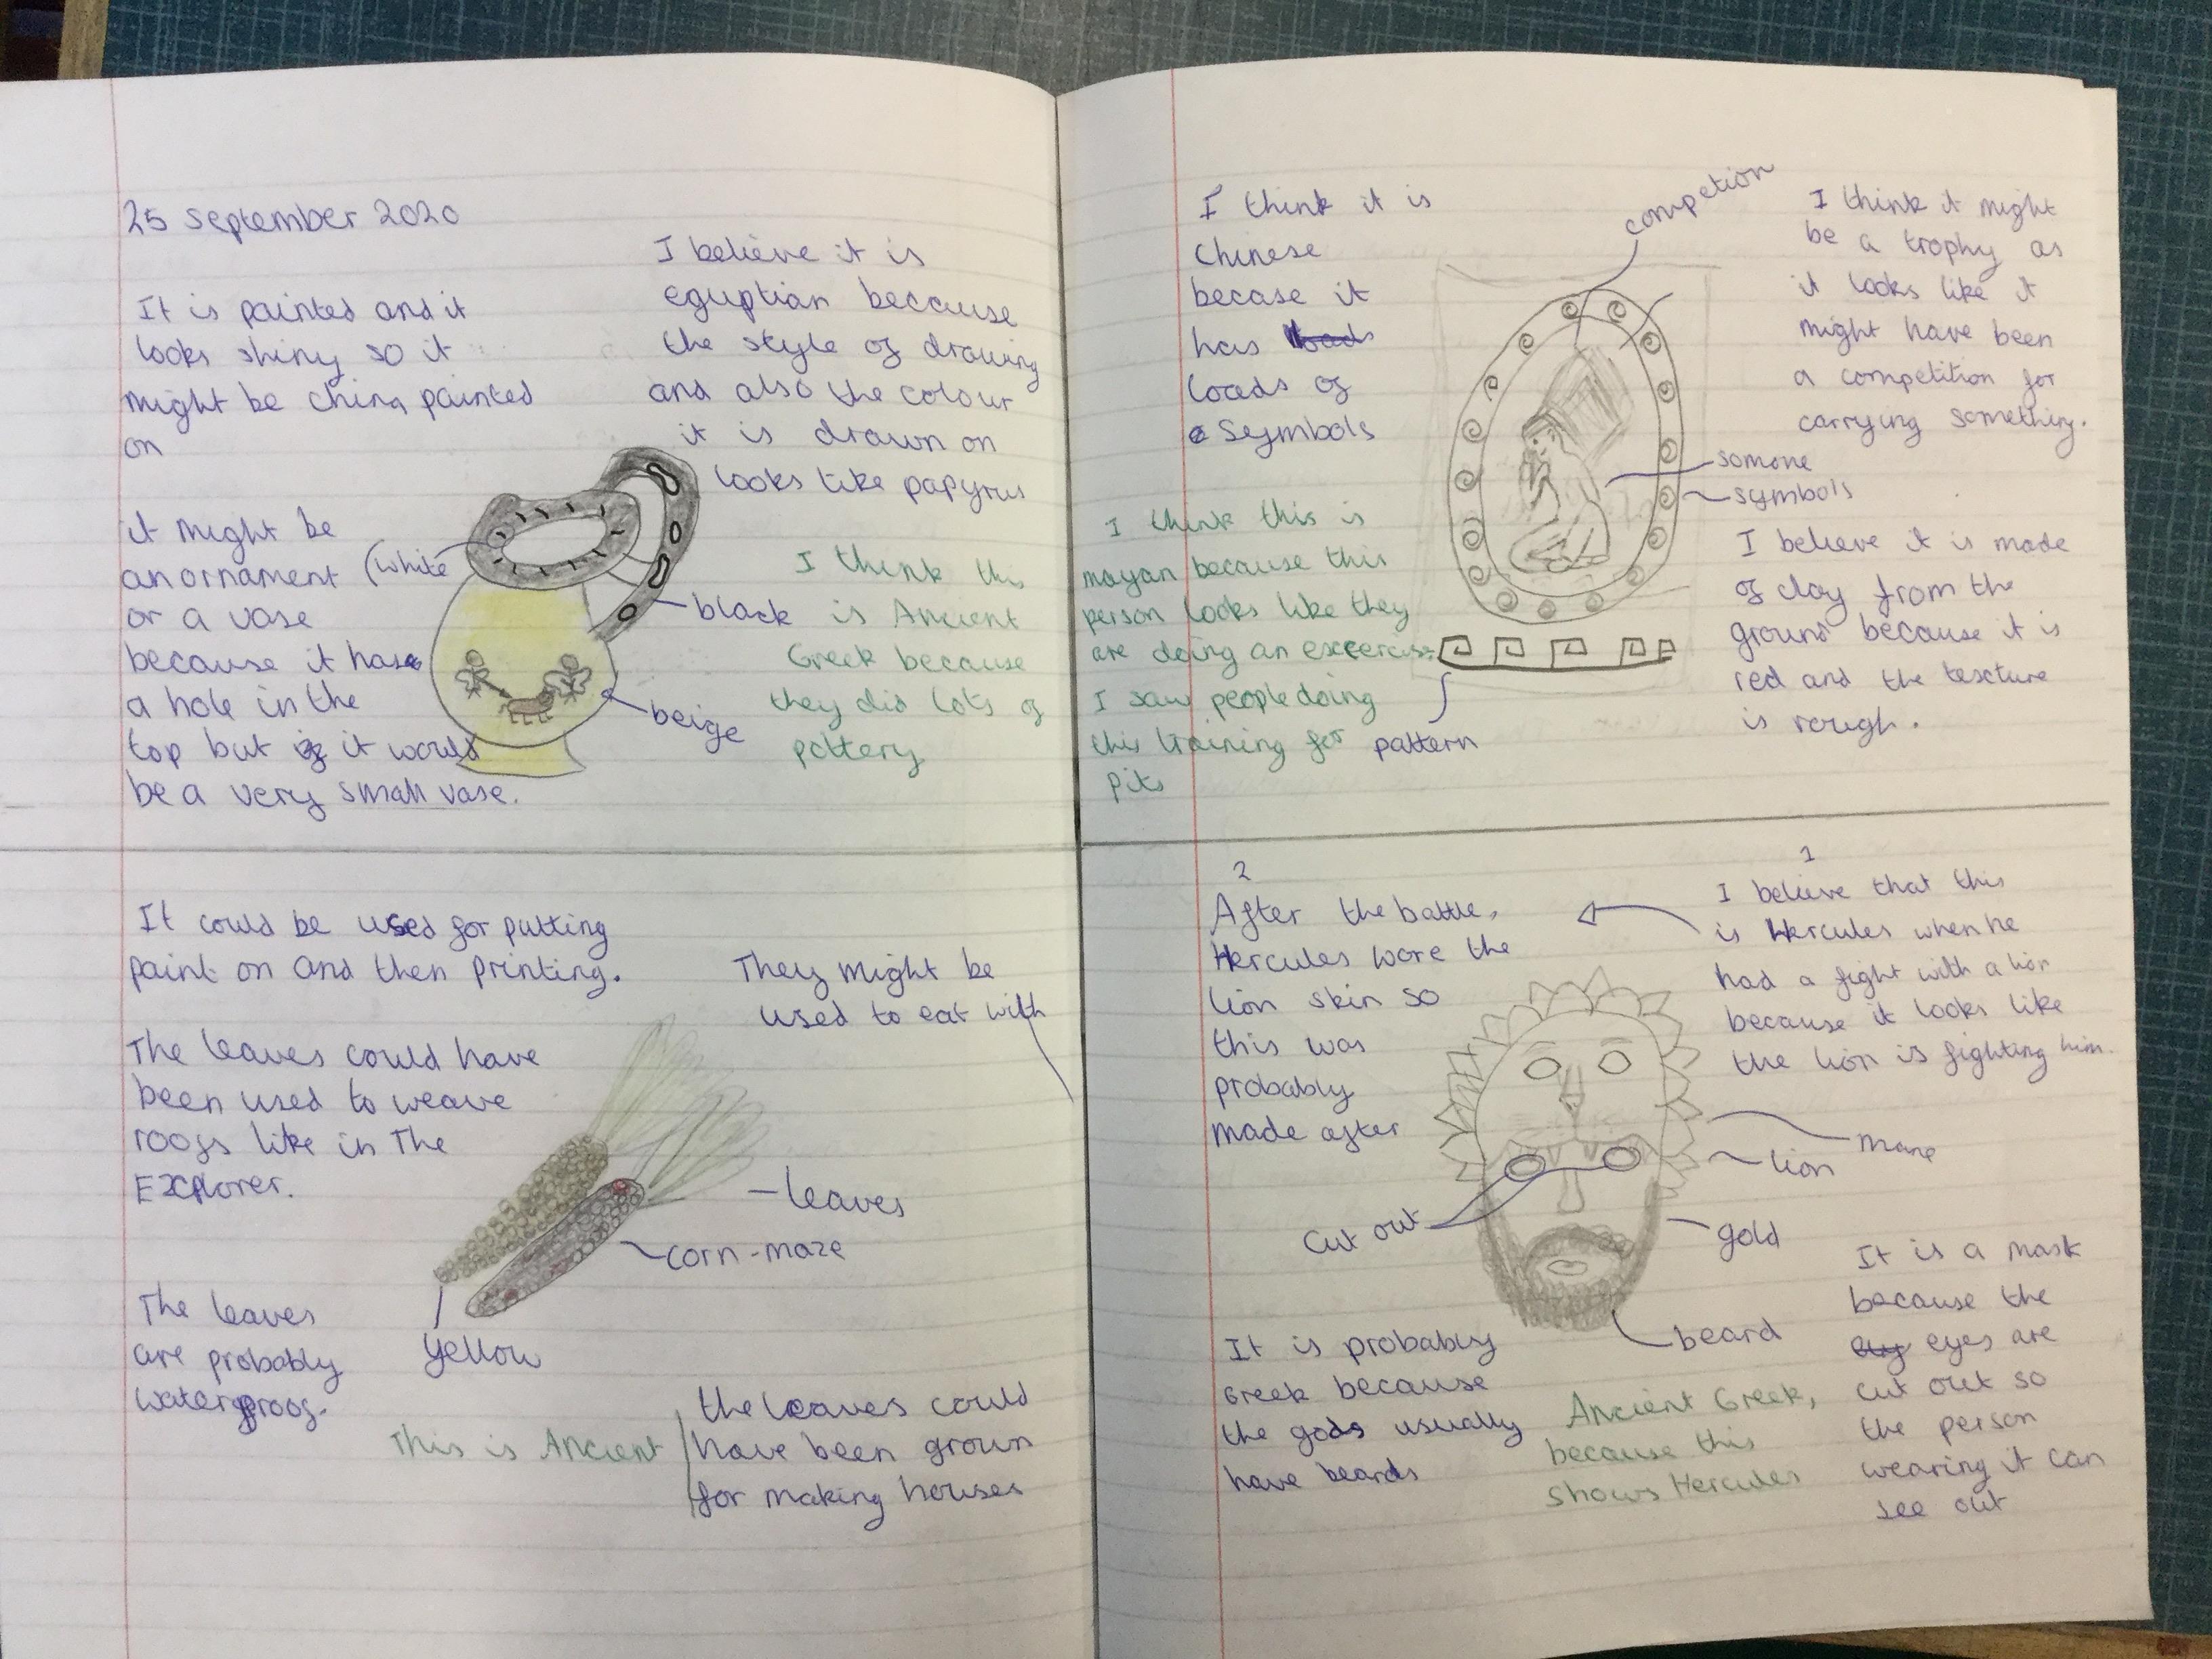 25 September 2020
It is painted and it
looks shiny so it
might be china painted
on
I believe it is
eguptian because
the style of drawing
and also the colour
it is drawn on
looks like papyrus
it might be
an ornament
or a vase
because it has
a hole in the
top but if it would
be a very small vase.
(white
black
beige
I think this
is Ancient
Greek because
they did lots of
pottery
It could be used for putting
paint on and then printing.
The leaves could have
been used to weave
roofs like in The
Explorer.
The leaves
are probably
waterproof.
They might be
used to eat with
leaves
corn-maze
yellow
This is Ancient
the leaves could
have been grown
for making houses
I think it is
Chinese
becase it
has loads
loads of
symbols
competion
I think it might
be a trophy as
it looks like it
might have been
a competition for
carrying something.
somone
symbols
I think this is
mayan because this
person looks like they
are doing an excercise
I saw people doing
this training for
pits
pattern
I believe it is made
of clay from the
ground because it is
red and the texture
is rough.
1
I believe that this
is Hercules when he
had a fight with a lion
because it looks like
the lion is fighting him.
2
After the battle,
Hercules wore the
lion skin so
this was
probably
made after
mane
lion
Cut out
gold
beard
It is probably
Greek because
the gods usually
have beards
Ancient Greek,
because this
shows Hercules
It is a mask
because the
eyes are
cut out so
the person
wearing it can
see out